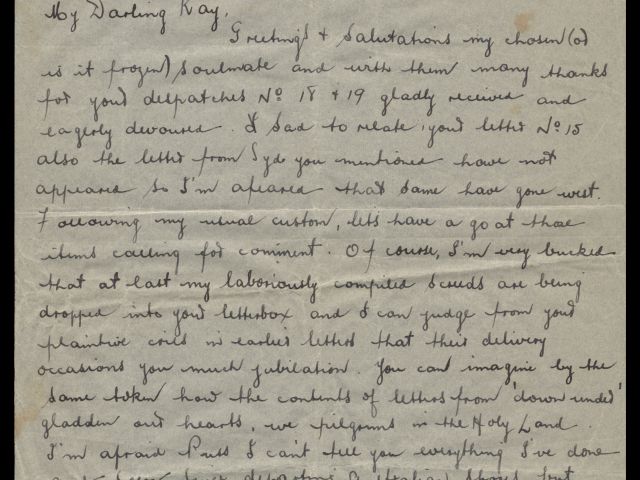 My Darling Kay,
Greetings & Salutations my chosen (or
is it frozen) soulmate and with them many thanks
for your despatches No 18 & 19 gladly received and
eagerly devoured. & sad to relate, your letter No 15
also the letter from Syd you mentioned have not
appeared so I'm afeared that same have gone west.
Following my usual custom, lets have a go at those
items calling for comment. Of course, I'm very bucked
that at last my laboriously compiled screeds are being
dropped into your letterbox and I can judge from your
plaintive cries in earlier letters that their delivery
occasions you much jubilation. You can imagine by the
same token how the contents of letters from 'down under'
gladden our hearts, we pilgrims in the Holy Land.
I'm afraid Puss I can't tell you everything I've done